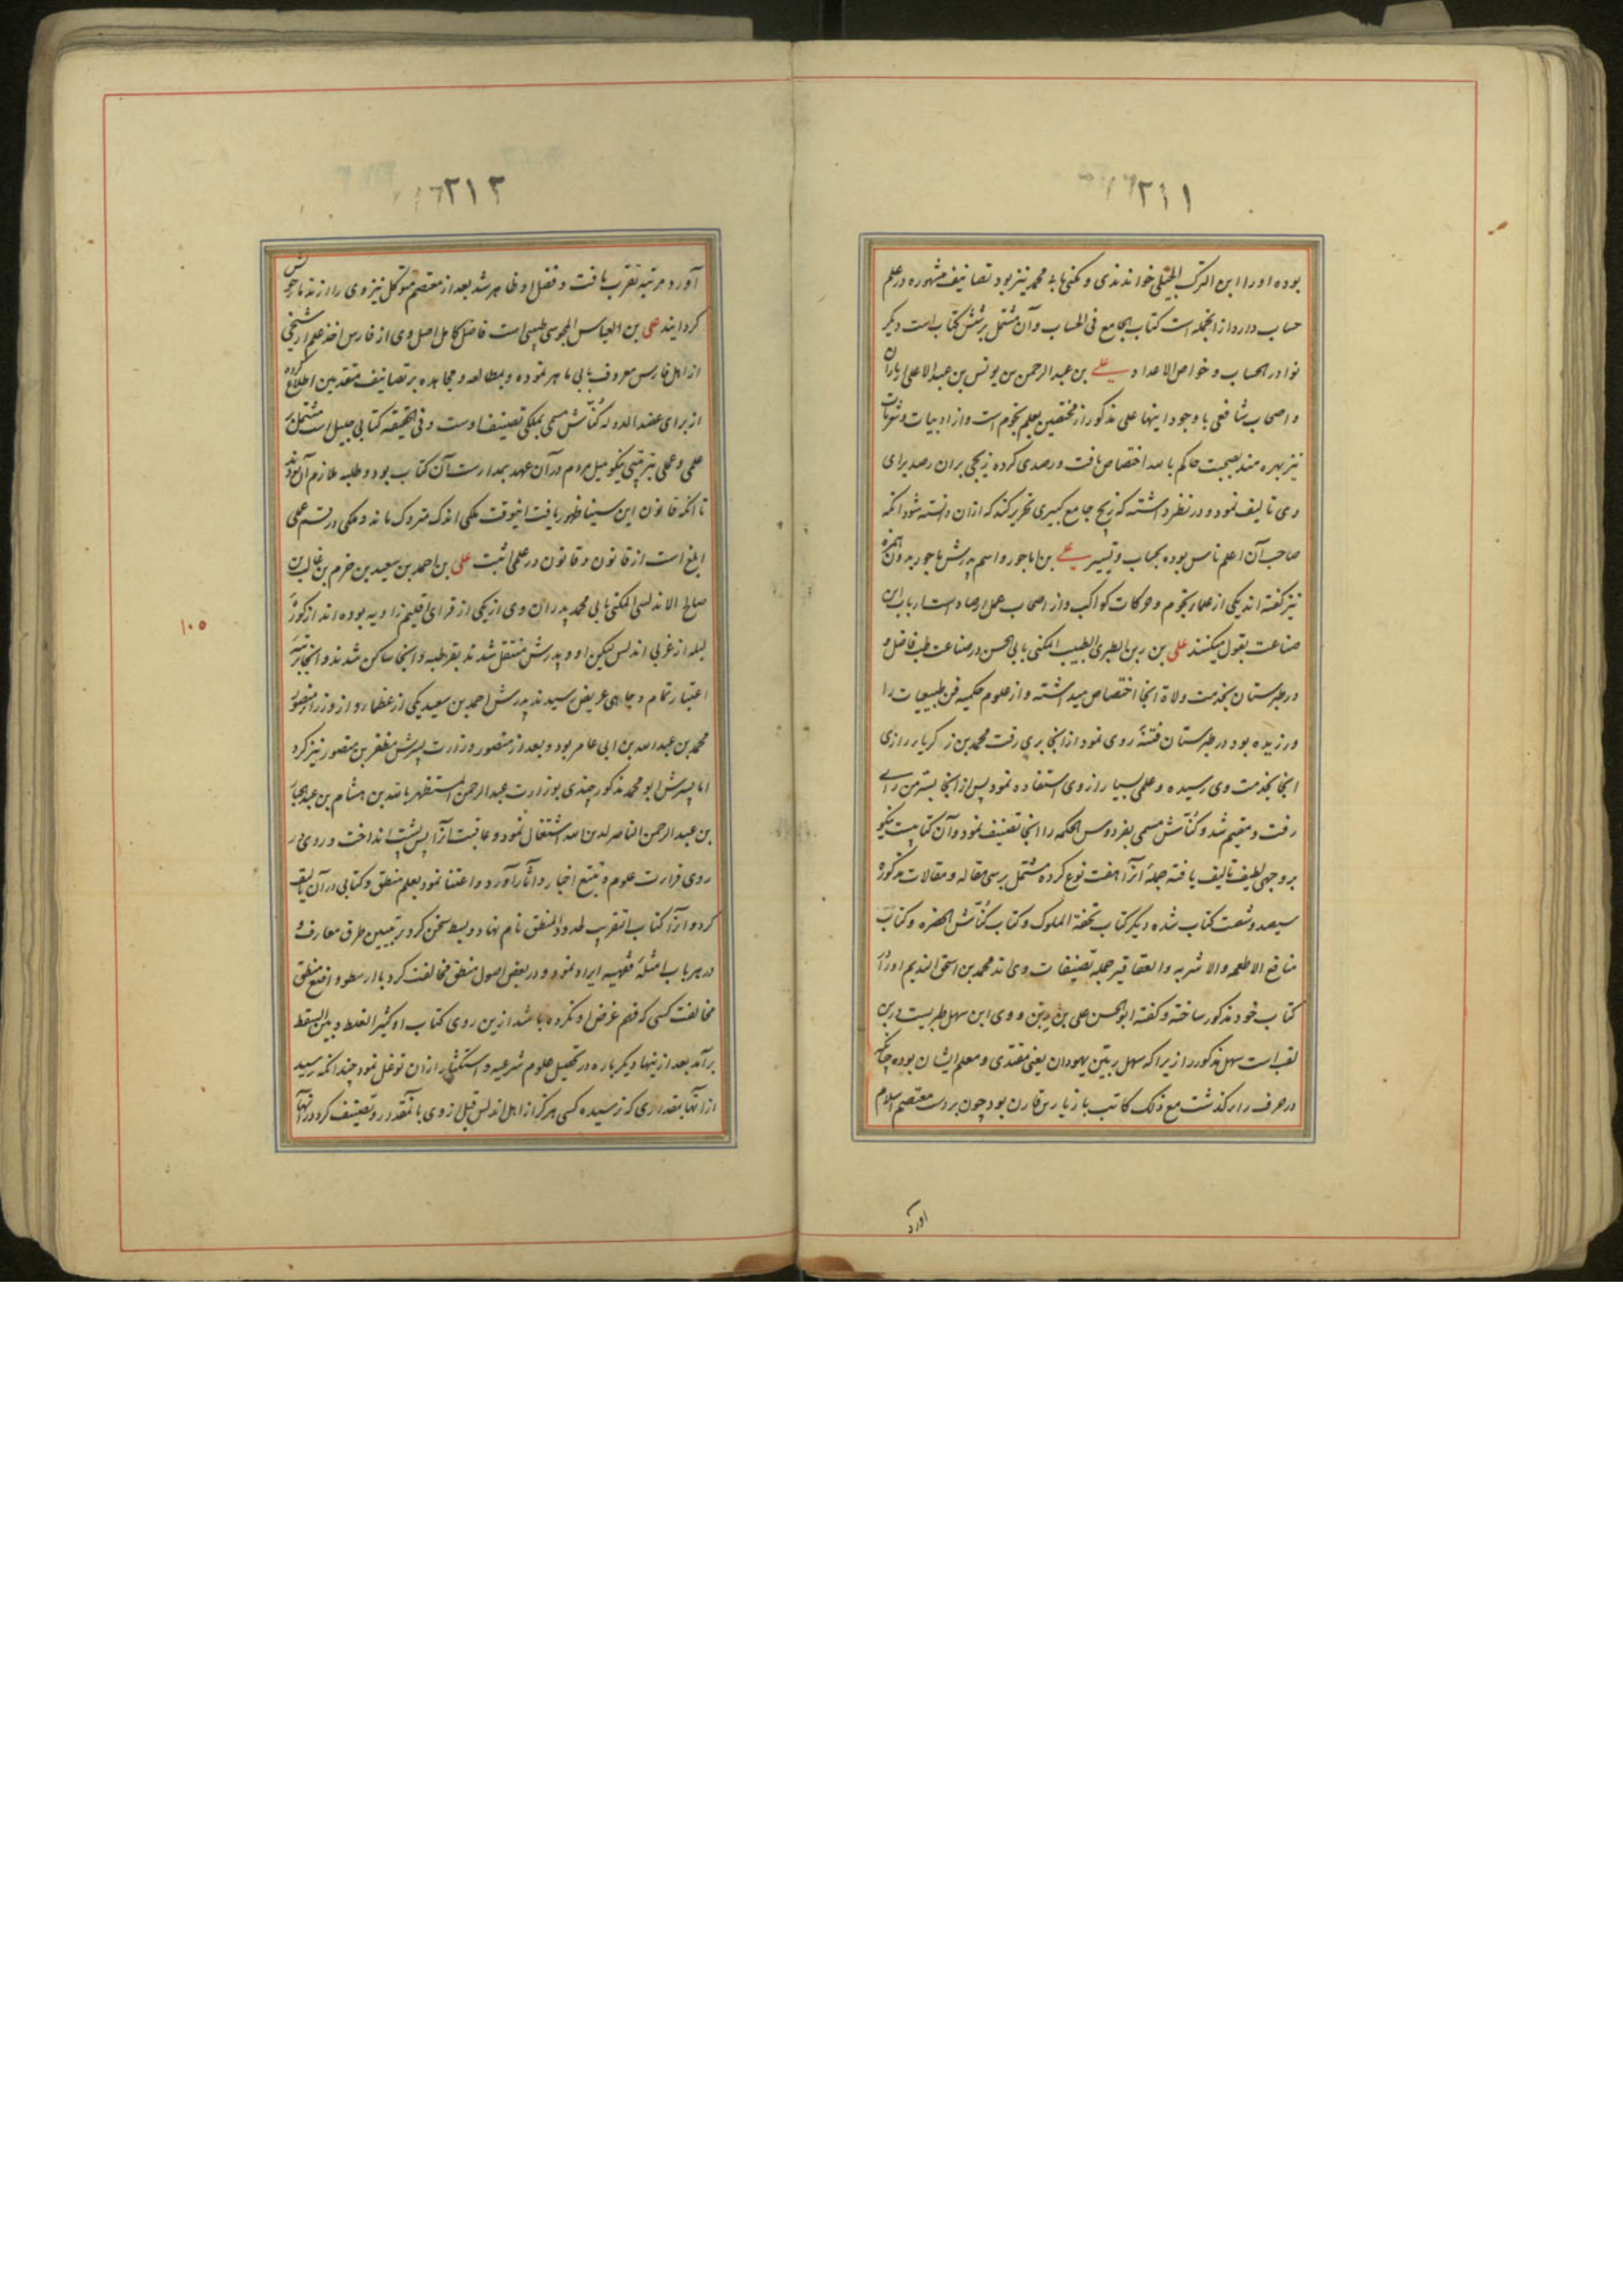 ۲۱۱
بوده او را ابن الترک الجیلی خواندندی و مکنی بابو محمد نیز بود تصانیف مشهوره در علم
حساب دارد از انجمله است کتاب الجامع فی الحساب و آن مشتمل بر شش کتاب است دیگر
نوادر الحساب و خواص الاعداد علی بن عبد الرحمن بن یونس بن عبد الاعلی از یاران
و اصحاب شافعی با وجود اینها علی مذکور از محققین بعلم نجوم است و از ادبیات و شعریات
نیز بهره مند بصحبت حاکم بامر الله اختصاص یافت و رصدی کرده زیجی بران رصد برای
وی تالیف نمود و در نظر داشته که زیج جامع کبیری تحریر کند که ازان دانسته شود انکه
صاحب آن اعلم ناس بوده بحساب و تسییر علی بن اماجور و اسم پدرش ماجور بدون همزه
نیز گفته اند یکی از علماء نجوم و حرکات کواکب و از اصحاب عمل ارصاد است ارباب این
صناعت بقول میکنند علی بن ربن الطبری الطبیب المکنی بابی الحسن در صناعت طب فاضل و
در طبرستان بخدمت ولاة انجا اختصاص میداشته و از علوم حکمیه فن طبیعیات را
ورزیده بود در طبرستان فتنهٔ روی نمود از انجا بری رفت محمد بن زکریاء رازی
انجا بخدمت وی رسیده و علمی بسیار از وی استفاده نمود پس از انجا بسر من رای
رفت و مقیم شد و کنّاش مسمی بفردوس الحکمه را انجا تصنیف نمود و آن کتابیست نیکو
بر وجهی لطیف تالیف یافته جملهٔ آنرا هفت نوع کرده مشتمل بر سی مقاله و مقالات مذکوره
سیصد و شصت کتاب شده دیگر کتاب تحفة الملوک و کتاب کنّاش الحضره و کتاب
منافع الاطعمه والاشربه والعقاقیر جمله تصنیفات وی اند محمد بن اسحق الندیم او را در
کتاب خود مذکور ساخته و گفته ابو الحسن علی بن ربن و وی ابن سهل طبریست و ربن
لقب است سهل مذکور را زیرا که سهل ربین یهودان یعنی مقتدی و معلم ایشان بوده چنانکه
در حرف راء گذشت مع ذلک کاتب مازیار بن قارن بود چون بر دست معتصم اسلام
اورد
۲۱۲
آورد مرتبه تقرب یافت و فضل او ظاهر شد بعد از معتصم متوکل نیز وی را از ندماء خویش
گردانید علی بن العباس المجوسی طبیبی است فاضل کامل اصل وی از فارس اخذ علم از شیخی
از اهل فارس معروف بابی ماهر نموده و بمطالعه و مجاهده بر تصانیف متقدمین اطلاع کرده
از برای عضد الدوله کنّاش مسمی بملکی تصنیف اوست و فی الحقیقه کتابی جلیل است مشتمل بر
علمی و عملی بترتیبی نیکو میل مردم در آن عهد بمدارست آن کتاب بود و طلبه ملازم آن بودند
تا انکه قانون ابن سینا ظهور یافت اینوقت ملکی اندک متروک ماند و ملکی در قسم عملی
ابلغ است از قانون و قانون در علمی اثبت علی بن احمد بن سعید بن حزم بن غالب بن
صالح الاندلسی المکنی بابی محمد پدران وی از یکی از قرای اقلیم زاویه بوده اند از کورهٔ
لبله از غربی اندلس لیکن او و پدرش منتقل شدند بقرطبه و انجا ساکن شدند و انجا بمرتبهٔ
اعتبار تمام و جاهی عریض رسیدند پدرش احمد بن سعید یکی از عظما و از وزراء منصور
محمد بن عبد الله بن ابی عامر بود و بعد از منصور وزارت پسرش مظفر بن منصور نیز کرد
اما پسرش ابو محمد مذکور چندی بوزارت عبد الرحمن المستظهر بالله بن هشام بن عبد الجبار
بن عبد الرحمن الناصر لدین الله اشتغال نمود و عاقبت آنرا پس پشت انداخت و روی بر
روی قراءت علوم و تتبع اخبار و آثار آورد و اعتنا نمود بعلم منطق و کتابی در آن تالیف
کرد و آنرا کتاب التقریب لحدود المنطق نام نهاد و بسط سخن کرد بر تبیین طرق معارف و
در هر باب امثلهٔ فقهیه ایراد نمود و در بعض اصول منطق مخالفت کرد با ارسطو واضع منطق
مخالفت کسی که فهم غرض او نکرده باشد ازین روی کتاب او کثیر الغلط و بین السقط
برآمد بعد ازینها دیگر باره در تحصیل علوم شرعیه و استکثار ازان توغل نمود چندانکه رسید
از انها بمقداری که نرسیده کسی هرگز از اهل اندلس قبل از وی بانمقدار و تصنیف کرد در انها
۱۰۵